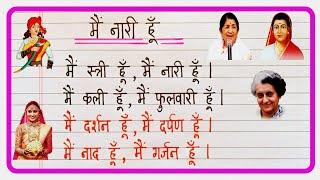 मैं नारी हूँ
मैं स्त्री हूँ, मैं नारी हूँ।
मैं कली हूँ, मैं फुलवारी हूँ।
मैं दर्शन हूँ, मैं दर्पण हूँ।
मैं नाद हूँ, मैं गर्जन हूँ।